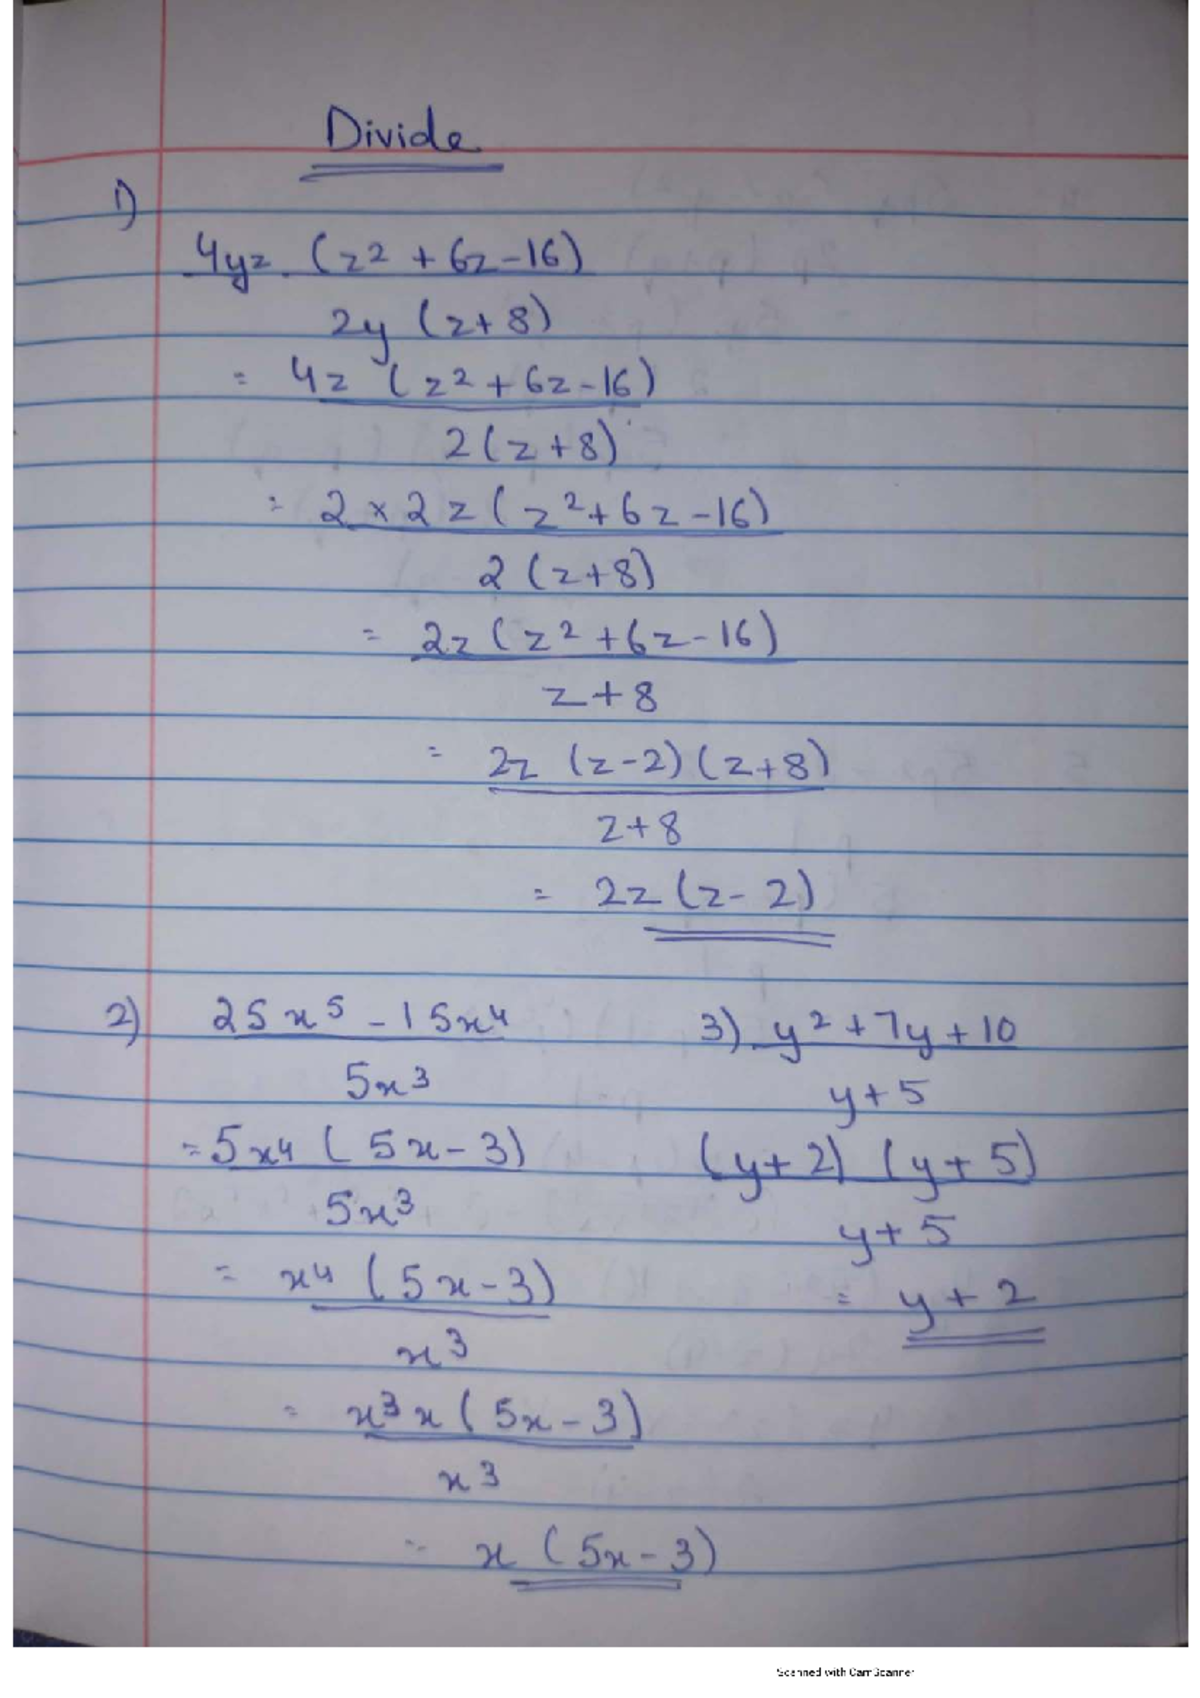 Divide
1)
4yz (z² + 6z - 16)
2y (z + 8)
= 4z (z² + 6z - 16)
2 (z + 8)
= 2 × 2z (z² + 6z - 16)
2 (z + 8)
= 2z (z² + 6z - 16)
z + 8
= 2z (z - 2) (z + 8)
z + 8
= 2z (z - 2)
2) 25x⁵ - 15x⁴
5x³
= 5x⁴ (5x - 3)
5x³
= x⁴ (5x - 3)
x³
= x³x (5x - 3)
x³
= x (5x - 3)
3) y² + 7y + 10
y + 5
(y + 2) (y + 5)
y + 5
= y + 2
Scanned with CamScanner